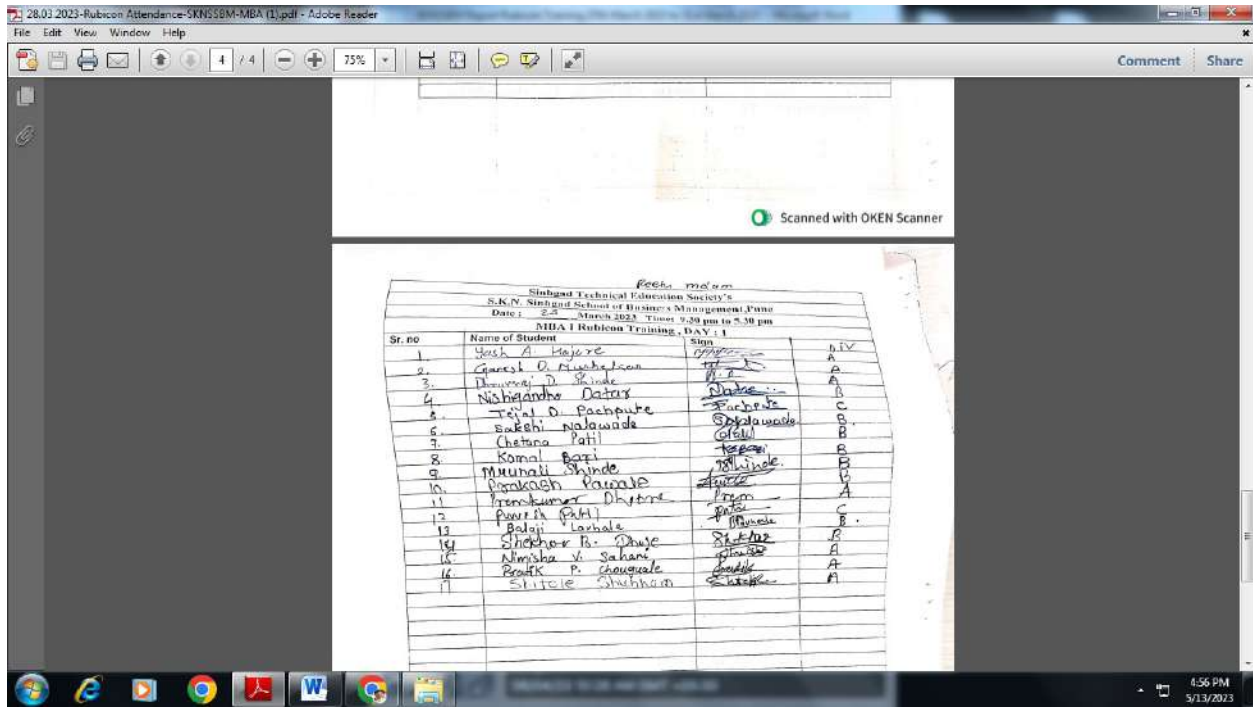 28.03.2023-Rubicon Attendance-SKNSSBM-MBA (1).pdf - Adobe Reader
File Edit View Window Help
4 / 4 75% Comment Share
Scanned with OKEN Scanner
madam
Sinhgad Technical Education Society's
S.K.N. Sinhgad School of Business Management,Pune
Date : March 2023 Time: 9.30 pm to 5.30 pm
MBA I Rubicon Training , DAY : 1
Sr. no Name of Student Sign DIV
1. Yash A. Hajare A
2. Ganesh D. A
3. D. Shinde A
4 Nishigandha Datar B
5. Tejal D. Pachpute Pachpute C
6. Sakshi Nalawade B.
7. Chetana Patil B
8. Komal Bari B
9. Mrunali Shinde Shinde. B
10. Prakash Pawale B
11 Premkumar Prem A
12 Patil C
13 Balaji B.
14 Shekhar B. Shekhar B
15. Nimisha V. Sahani A
16. Pratik P. Chouguale A
17 Shitole Shubham A
4:56 PM
5/13/2023